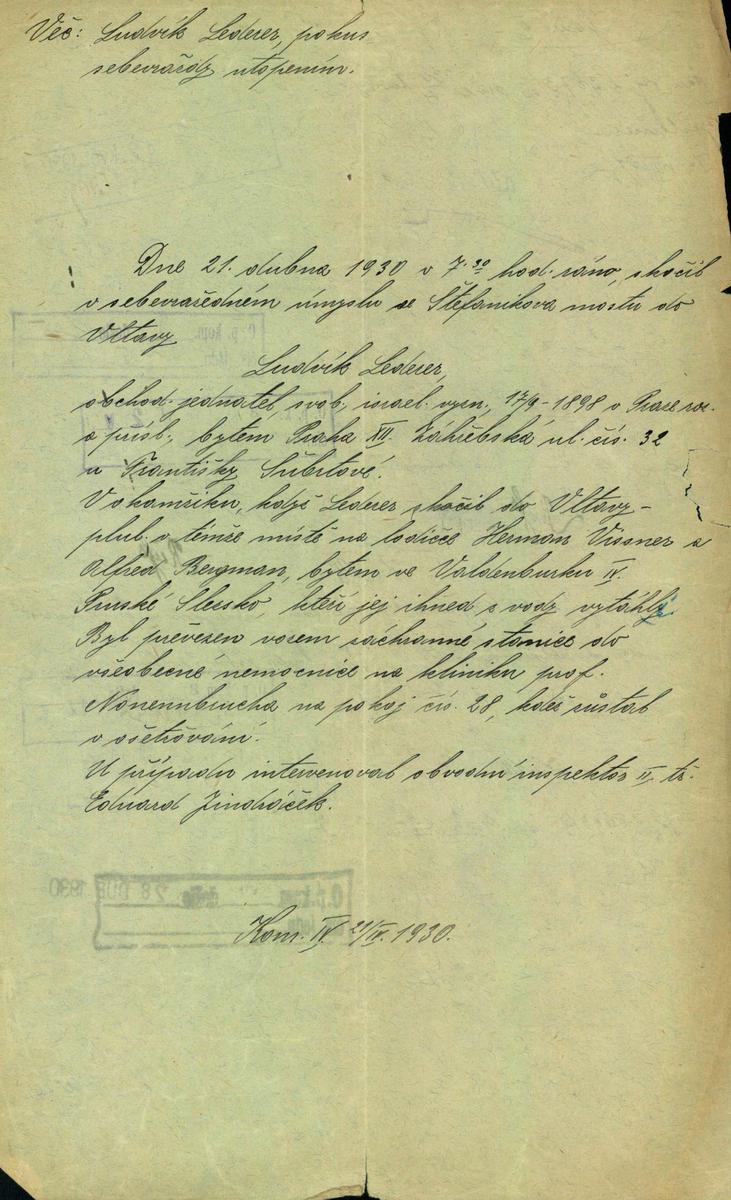 Věc: Ludvík Lederer, pokus
sebevraždy utopením.
Dne 21. dubna 1930 v 7.30 hod. ráno, skočil
v sebevražedném úmyslu se Štefanikova mostu do
Vltavy
Ludvík Lederer,
obchod. jednatel, svob., israel. vyzn., 17/9 - 1898 v Praze nar.
a přísl., bytem Praha XII. Záhřebská ul. čís. 32
u Františky Šubrtové.
V okamžiku, když Lederer skočil do Vltavy -
plul v témže místě na lodičce Herman Vissner a
Alfréd Bergman, bytem ve Valdenburku IV.
Pruské Slezsko, kteří jej ihned z vody vytáhli.
Byl převezen vozem záchranné stanice do
všeobecné nemocnice na kliniku prof.
Nonennbrucha na pokoj čís. 28, kdež zůstal
v ošetřování.
U případu intervenoval obvodní inspektor II. tř.
Eduard Jindráček.
28 DUB 1930
Kom. IV. 21/IV. 1930.